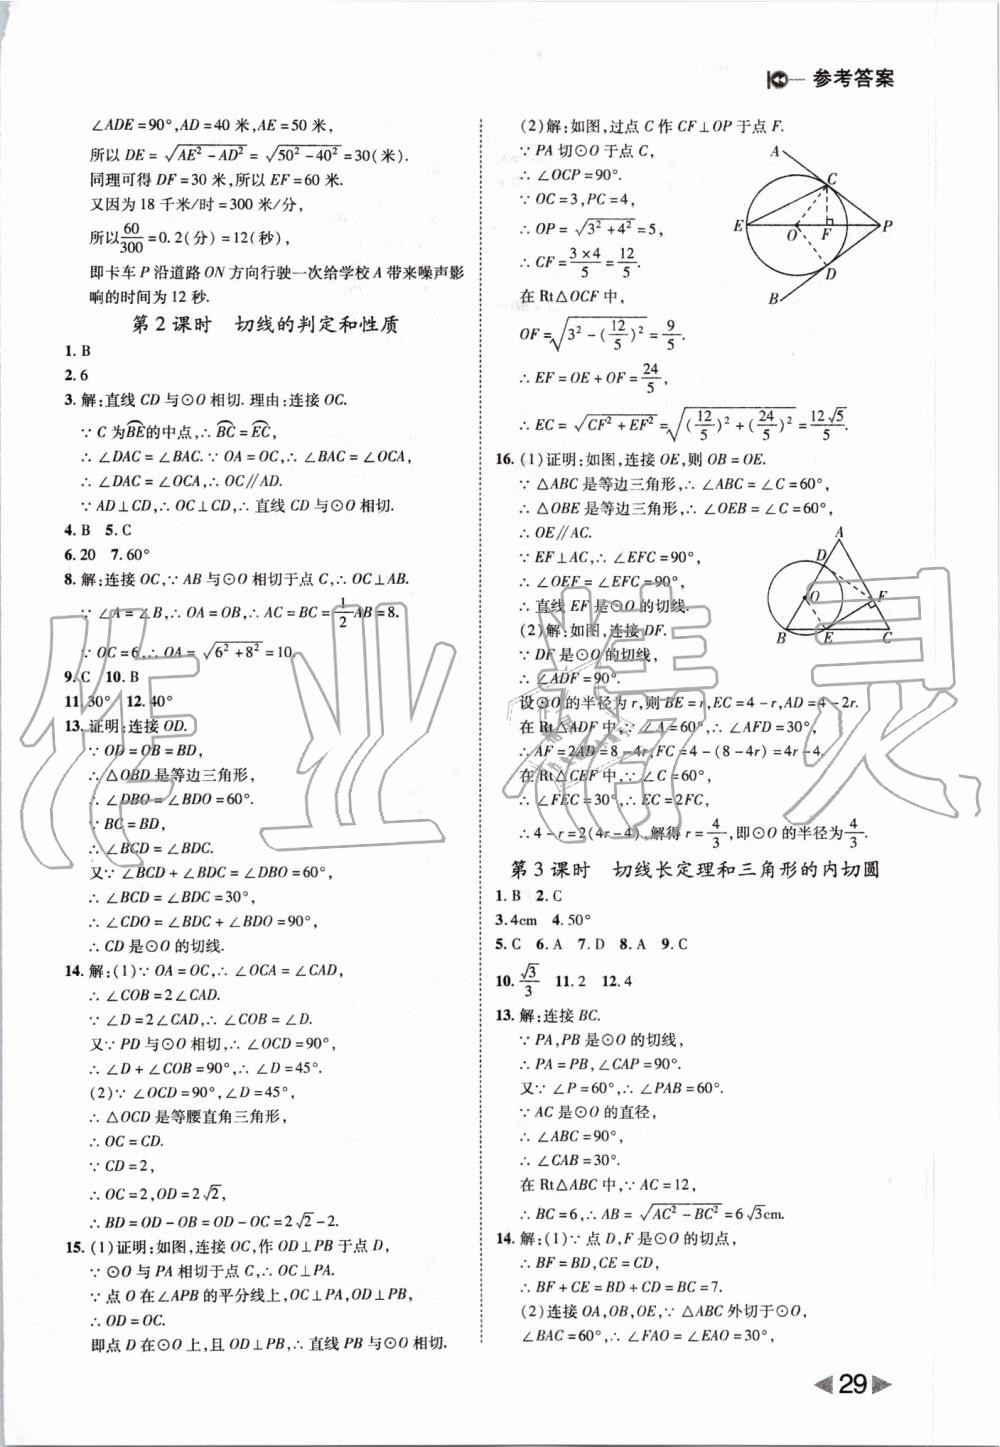 参考答案
∠ADE=90°,AD=40 米,AE=50 米,
所以 DE=√(AE²-AD²)=√(50²-40²)=30(米).
同理可得 DF=30 米,所以 EF=60 米.
又因为 18 千米/时=300 米/分,
所以60/300=0.2(分)=12(秒),
即卡车 P 沿道路 ON 方向行驶一次给学校 A 带来噪声影
响的时间为 12 秒.
第 2 课时 切线的判定和性质
1. B
2. 6
3. 解:直线 CD 与⊙O 相切. 理由:连接 OC.
∵ C 为BE的中点,∴ BC=EC,
∴ ∠DAC=∠BAC. ∵ OA=OC,∴ ∠BAC=∠OCA,
∴ ∠DAC=∠OCA,∴ OC∥AD.
∵ AD⊥CD,∴ OC⊥CD,∴ 直线 CD 与⊙O 相切.
4. B 5. C
6. 20 7. 60°
8. 解:连接 OC,∵ AB 与⊙O 相切于点 C,∴ OC⊥AB.
∵ ∠A=∠B,∴ OA=OB,∴ AC=BC=1/2AB=8.
∵ OC=6,∴ OA=√(6²+8²)=10.
9. C 10. B
11. 30° 12. 40°
13. 证明:连接 OD.
∵ OD=OB=BD,
∴ △OBD 是等边三角形,
∴ ∠DBO=∠BDO=60°.
∵ BC=BD,
∴ ∠BCD=∠BDC.
又∵ ∠BCD+∠BDC=∠DBO=60°,
∴ ∠BCD=∠BDC=30°,
∴ ∠CDO=∠BDC+∠BDO=90°,
∴ CD 是⊙O 的切线.
14. 解:(1)∵ OA=OC,∴ ∠OCA=∠CAD,
∴ ∠COB=2∠CAD.
∵ ∠D=2∠CAD,∴ ∠COB=∠D.
又∵ PD 与⊙O 相切,∴ ∠OCD=90°,
∴ ∠D+∠COB=90°,∴ ∠D=45°.
(2)∵ ∠OCD=90°,∠D=45°,
∴ △OCD 是等腰直角三角形,
∴ OC=CD.
∵ CD=2,
∴ OC=2,OD=2√2,
∴ BD=OD-OB=OD-OC=2√2-2.
15. (1)证明:如图,连接 OC,作 OD⊥PB 于点 D,
∵ ⊙O 与 PA 相切于点 C,∴ OC⊥PA.
∵ 点 O 在∠APB 的平分线上,OC⊥PA,OD⊥PB,
∴ OD=OC.
即点 D 在⊙O 上,且 OD⊥PB,∴ 直线 PB 与⊙O 相切.
(2)解:如图,过点 C 作 CF⊥OP 于点 F.
∵ PA 切⊙O 于点 C,
∴ ∠OCP=90°.
∵ OC=3,PC=4,
∴ OP=√(3²+4²)=5,
∴ CF=3×4/5=12/5,
在 Rt△OCF 中,
OF=√(3²-(12/5)²)=9/5.
∴ EF=OE+OF=24/5,
∴ EC=√(CF²+EF²)=√((12/5)²+(24/5)²)=12√5/5.
A
C
E
O
F
P
D
B
16. (1)证明:如图,连接 OE,则 OB=OE.
∵ △ABC 是等边三角形,∴ ∠ABC=∠C=60°,
∴ △OBE 是等边三角形,∴ ∠OEB=∠C=60°,
∴ OE∥AC.
∵ EF⊥AC,∴ ∠EFC=90°,
∴ ∠OEF=∠EFC=90°,
∴ 直线 EF 是⊙O 的切线.
(2)解:如图,连接 DF.
∵ DF 是⊙O 的切线,
∴ ∠ADF=90°.
A
D
O
F
B
E
C
设⊙O 的半径为 r,则 BE=r,EC=4-r,AD=4-2r.
在 Rt△ADF 中,∵ ∠A=60°,∴ ∠AFD=30°,
∴ AF=2AD=8-4r,FC=4-(8-4r)=4r-4.
在 Rt△CEF 中,∵ ∠C=60°,
∴ ∠FEC=30°,∴ EC=2FC,
∴ 4-r=2(4r-4),解得 r=4/3,即⊙O 的半径为4/3.
第 3 课时 切线长定理和三角形的内切圆
1. B 2. C
3. 4cm 4. 50°
5. C 6. A 7. D 8. A 9. C
10. √3/3 11. 2 12. 4
13. 解:连接 BC.
∵ PA,PB 是⊙O 的切线,
∴ PA=PB,∠CAP=90°.
又∵ ∠P=60°,∴ ∠PAB=60°;
∵ AC 是⊙O 的直径,
∴ ∠ABC=90°,
∴ ∠CAB=30°.
在 Rt△ABC 中,∵ AC=12,
∴ BC=6,∴ AB=√(AC²-BC²)=6√3cm.
14. 解:(1)∵ 点 D,F 是⊙O 的切点,
∴ BF=BD,CE=CD,
∴ BF+CE=BD+CD=BC=7.
(2)连接 OA,OB,OE,∵ △ABC 外切于⊙O,
∠BAC=60°,∴ ∠FAO=∠EAO=30°,
29
作业精灵